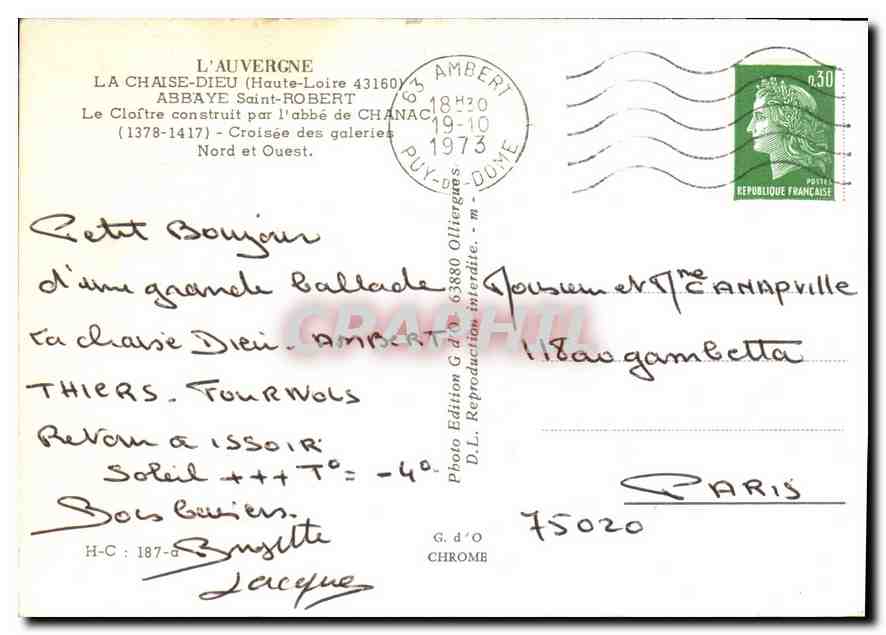 L'AUVERGNE
LA CHAISE-DIEU (Haute-Loire 43160)
ABBAYE Saint-ROBERT
Le Cloître construit par l'abbé de CHANAC
(1378-1417) - Croisée des galeries
Nord et Ouest.
63 AMBERT
18H30
19-10
1973
PUY-DE-DOME
0,30
POSTES
REPUBLIQUE FRANÇAISE
Petit Bonjour
d'une grande ballade
La chaise Dieu. AMBERT
THIERS. FOURNOLS
Retour a ISSOIR
Soleil +++ T° = -4°
Bons baisers.
Brigitte
Jacques
H-C : 187-a
Photo Edition G d'O. 63880 Olliergues.
D.L. Reproduction interdite. - m -
G. d'O
CHROME
Monsieur et Mme CANAPVILLE
118 av gambetta
PARIS
75020
CPAPHIL